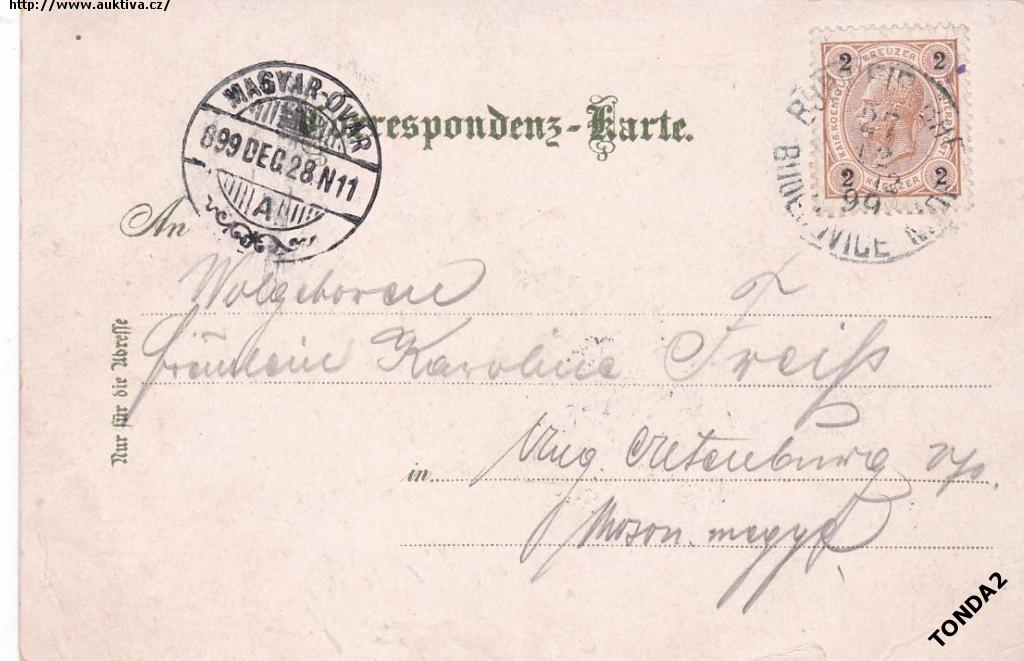 http://www.auktiva.cz/
MAGYAR-ÓVÁR
899 DEC. 28. N11
A
Correspondenz-Karte.
KREUZER
2 2
2 2
KREUZER
99
An
Wolgeboren
Fräulein Karoline Freiß
in Ung. Altenburg
Moson megye
Nur für die Adresse
TONDA2